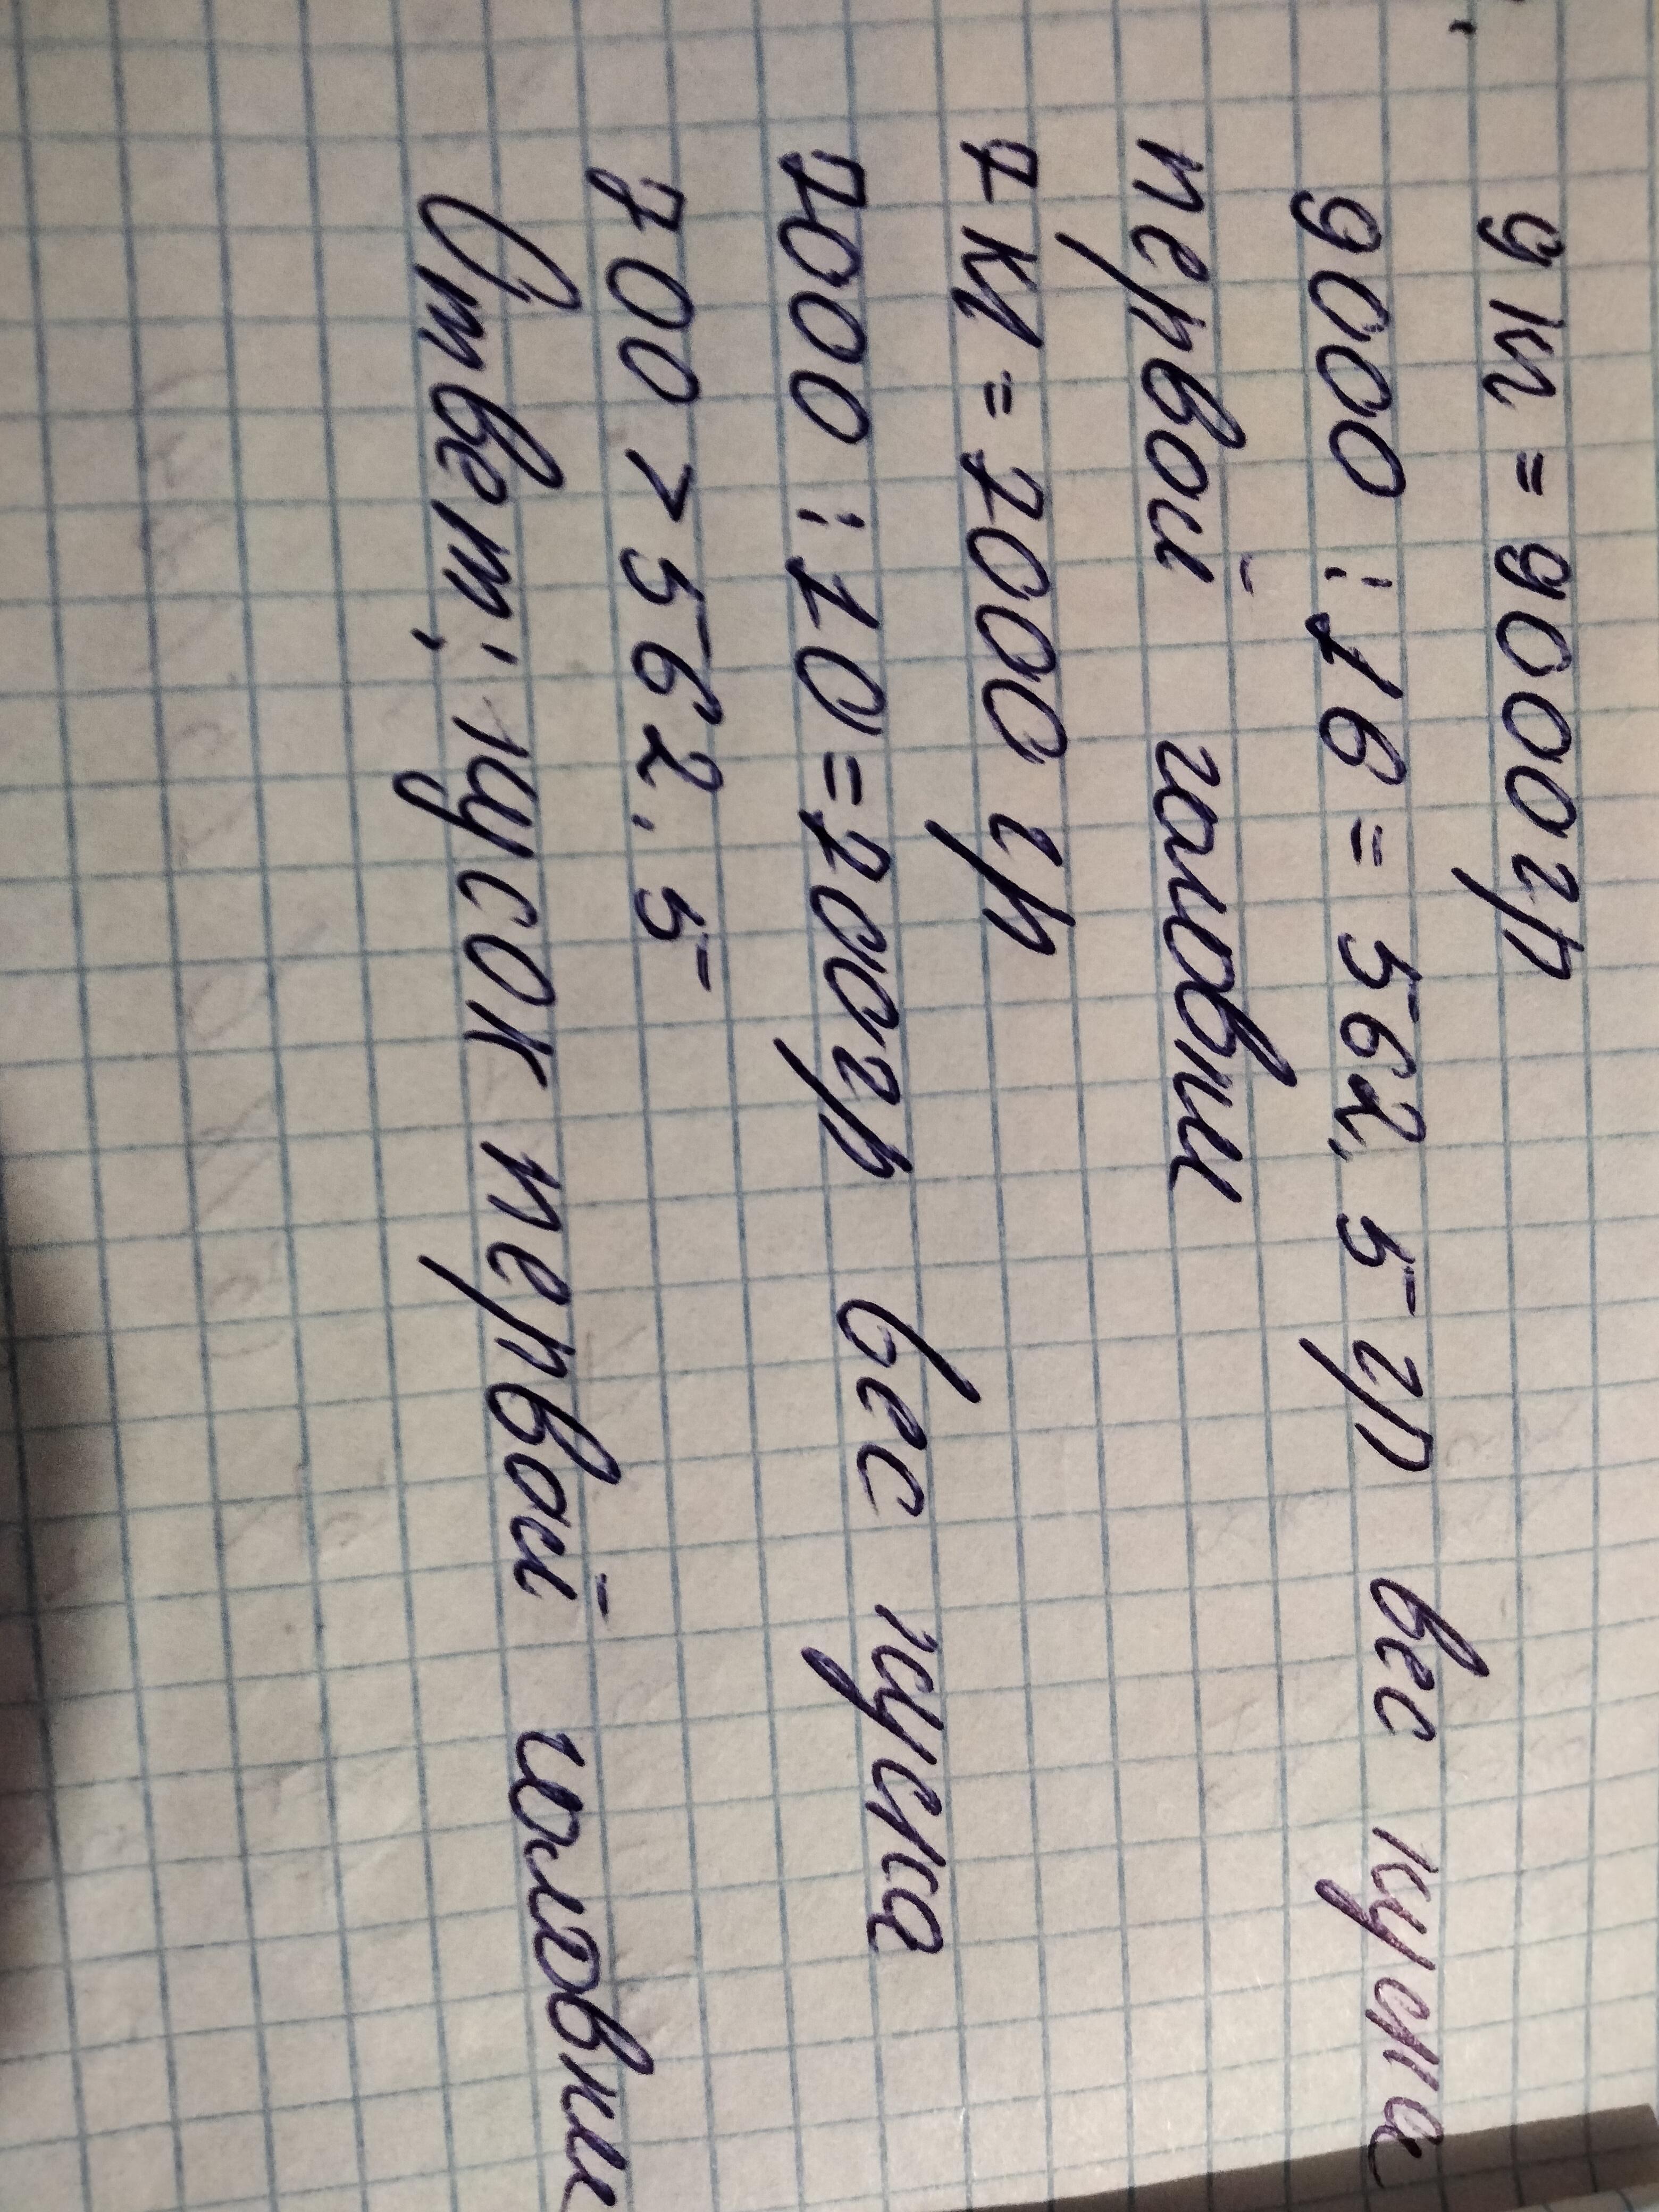 9 кг = 9000 гр
9000 : 16 = 562.5 гр вес куска
первой головки
7 кг = 7000 гр
7000 : 10 = 700 гр вес куска
700 > 562.5
Ответ: кусок первой головки